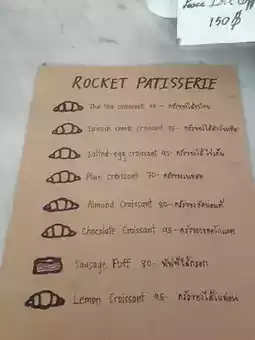 150฿
ROCKET PATISSERIE
Thai tea croissant ครัวซองไส้ชาไทย
Spinach cheese croissant 95-
Salted-egg croissant 95- ครัวซองไส้ไข่เค็ม
Plain croissant 70-
Almond Croissant 80- ครัวซองอัลมอนด์
Chocolate Croissant 95- ครัวซองชอคโกแลต
Sausage Puff 80- พัฟไส้กรอก
Lemon Croissant 95- ครัวซองไส้เลม่อน